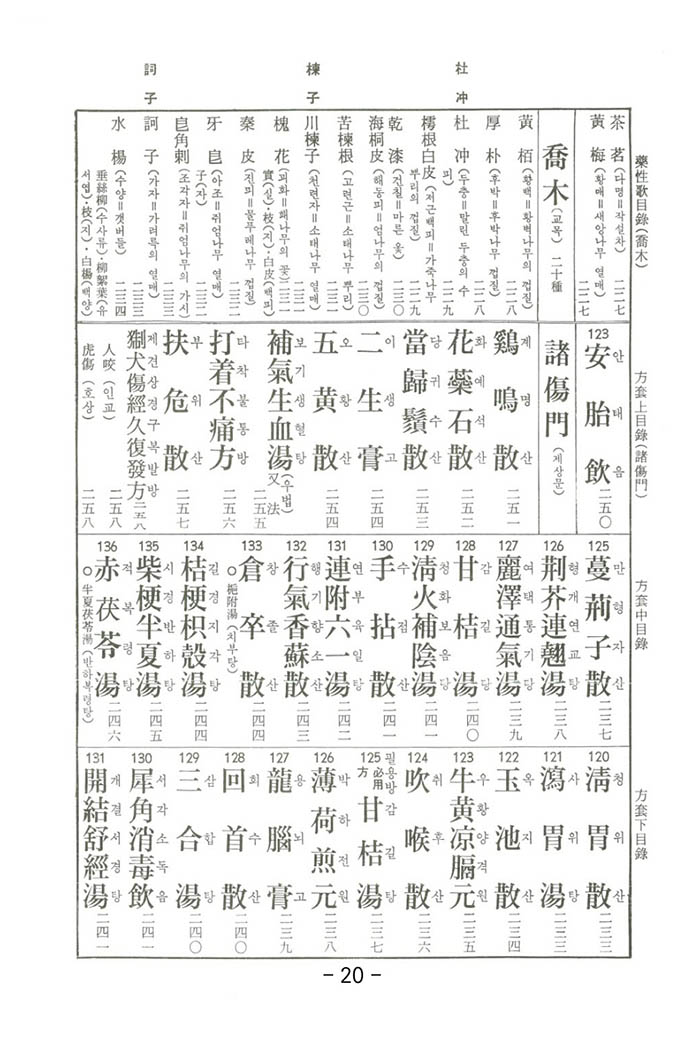 杜冲
楝子
訶子
藥性歌目錄(喬木)
茶茗(다명=작설차) 二二七
黃梅(황매=새앙나무 열매) 二二七
喬木(교목) 二十種
黃栢(황백=황벽나무의 껍질) 二二八
厚朴(후박=후박나무 껍질) 二二八
杜冲(두충=말린 두충의 수피) 二二九
樗根白皮(저근백피=가죽나무 뿌리의 껍질) 二二九
乾漆(건칠=마른 옻) 二三〇
海桐皮(해동피=엄나무의 껍질) 二三〇
苦楝根(고련근=소태나무 뿌리) 二三一
川楝子(천련자=소태나무 열매) 二三一
槐花(괴화=홰나무의 꽃) 二三一
實(실)·枝(지)·白皮(백피)
秦皮(진피=물푸레나무 껍질) 二三二
牙皀(아조=쥐엄나무의 열매) 二三二
子(자)
皀角刺(조각자=쥐엄나무의 가시) 二三三
訶子(가자=가려륵의 열매) 二三四
水楊(수양=갯버들) 二三四
垂絲柳(수사류)·柳絮葉(유서엽)·枝(지)·白楊(백양)
方套上目錄(諸傷門)
123 安胎飮 안태음 二五〇
諸傷門(제상문)
鷄鳴散 계명산 二五一
花蘂石散 화예석산 二五二
當歸鬚散 당귀수산 二五三
二生膏 이생고 二五四
五黃散 오황산 二五四
補氣生血湯 보기생혈탕 又法(우법) 二五五
打着不痛方 타착불통방 二五六
扶危散 부위산 二五七
猘犬傷經久復發方 제견상경구복발방 二五八
人咬(인교) 二五八
虎傷(호상) 二五八
方套中目錄
125 蔓荊子散 만형자산 二三七
126 荊芥連翹湯 형개연교탕 二三八
127 麗澤通氣湯 여택통기탕 二三九
128 甘桔湯 감길탕 二四〇
129 淸火補陰湯 청화보음탕 二四一
130 手拈散 수점산 二四一
131 連附六一湯 연부육일탕 二四二
132 行氣香蘇散 행기향소산 二四三
133 倉卒散 창졸산 二四四
○梔附湯(치부탕)
134 桔梗枳殼湯 길경지각탕 二四四
135 柴梗半夏湯 시경반하탕 二四五
136 赤茯苓湯 적복령탕 二四六
○半夏茯苓湯(반하복령탕)
方套下目錄
120 淸胃散 청위산 二三三
121 瀉胃湯 사위탕 二三三
122 玉池散 옥지산 二三四
123 牛黃凉膈元 우황양격원 二三五
124 吹喉散 취후산 二三六
125 必用方甘桔湯 필용방감길탕 二三七
126 薄荷煎元 박하전원 二三八
127 龍腦膏 용뇌고 二三九
128 回首散 회수산 二四〇
129 三合湯 삼합탕 二四〇
130 犀角消毒飮 서각소독음 二四一
131 開結舒經湯 개결서경탕 二四一
- 20 -